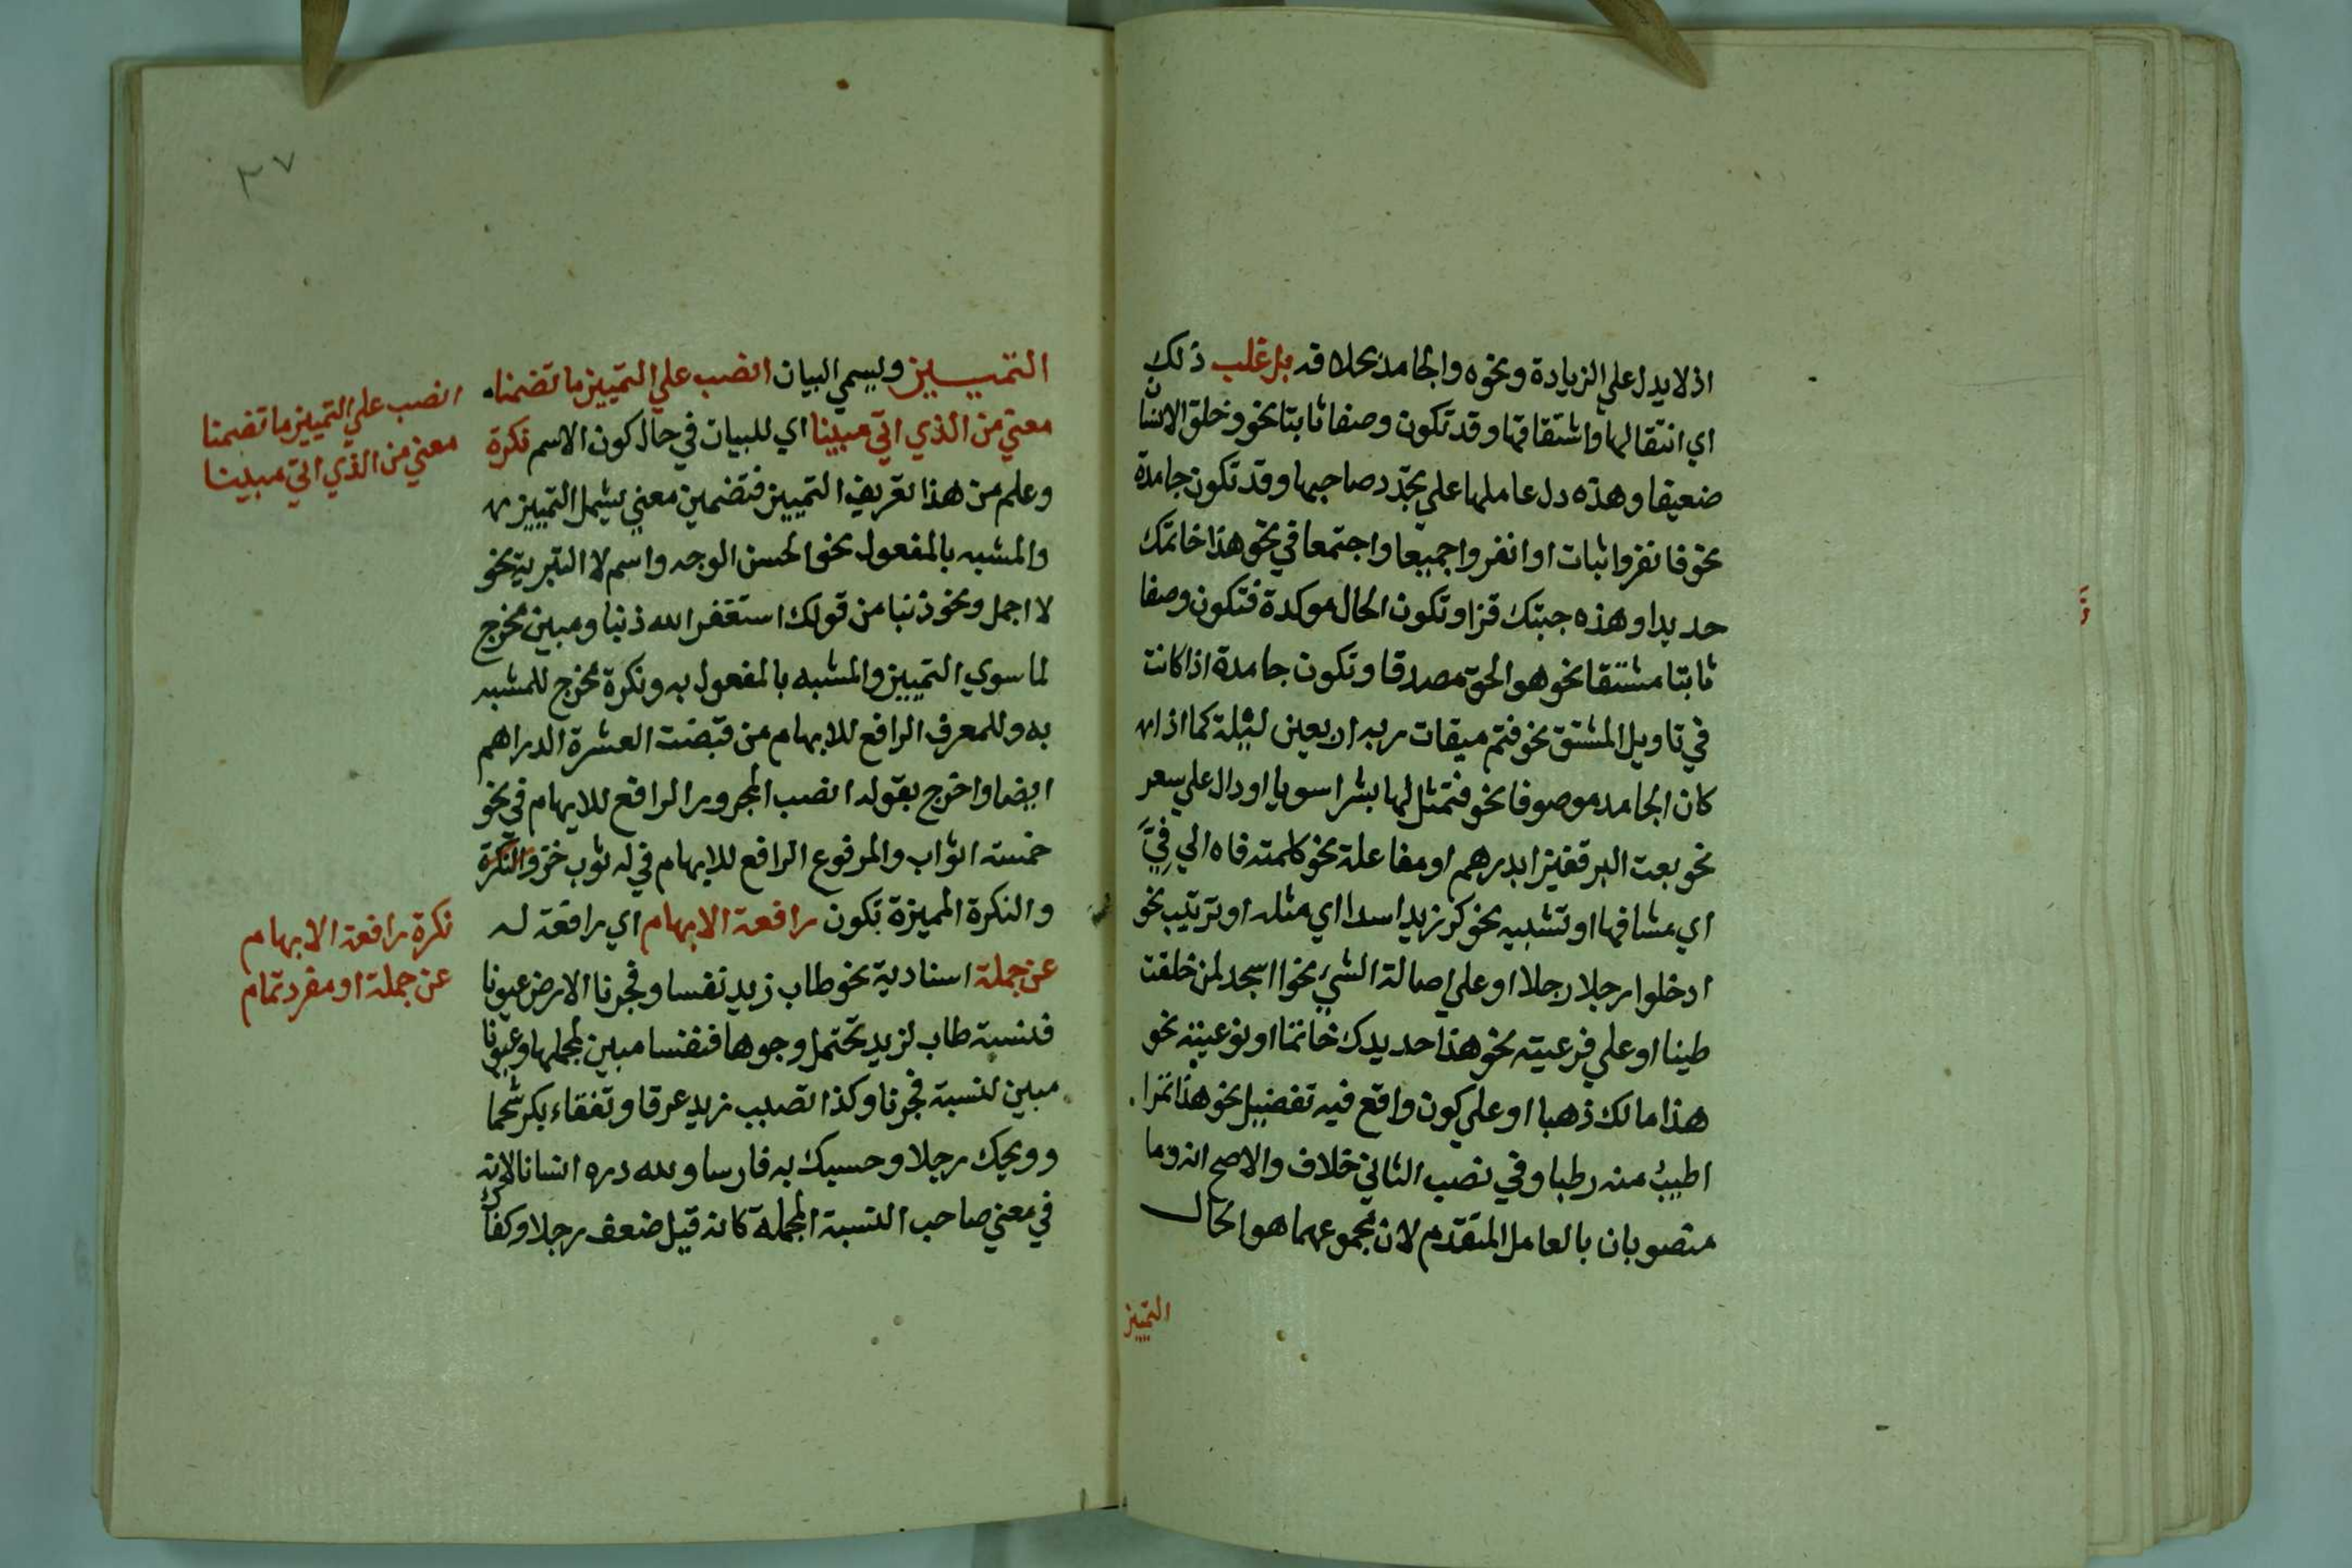 اذ لا يدل علي الزيادة ونحوه والجامد بحلا فه بل غلب ذلك
اي انتقالها واشتقاقها وقد تكون وصفا ثابتا نحو وخلق الانسان
ضعيفا وهذه دل عاملها علي تجدد صاحبها وقد تكون جامدة
نحو فانفروا ثبات او انفروا جميعا واجتمعا في نحو هذا خاتمك
حديدا وهذه جبتك قزا وتكون الحال موكدة فتكون وصفا
ثابتا مشتقا نحو هو الحق مصدقا وتكون جامدة اذا كانت
في تاويل المشتق نحو فتم ميقات ربه اربعين ليلة كما اذا
كان الجامد موصوفا نحو فتمثل لها بشرا سويا او دال علي سعر
نحو بعت البر قفيزا بدرهم او مفاعلة نحو كلمته فاه الي فِيَّ
اي مشافها او تشبيه نحو كر زيد اسدا اي مثله او ترتيب نحو
ادخلوا رجلا رجلا او علي اصالة الشيء نحو ااسجد لمن خلقت
طينا او علي فرعيته نحو هذا حديدك خاتما او نوعيته نحو
هذا مالك ذهبا او علي كون واقع فيه تفضيل نحو هذا تمرا
اطيبُ منه رطبا وفي نصب الثاني خلاف والاصح انه وما
منصوبان بالعامل المتقدم لان مجموعهما هو الحال
التمييز
٣٧
التمييز ويسمي البيان انصب علي التمييز ما تضمنا
معني من الذي اتي مبينا اي للبيان في حال كون الاسم نكرة
وعلم من هذا تعريف التمييز فتضمين معني يشمل التمييز
والمشبه بالمفعول نحو الحسن الوجه واسم لا التبرية نحو
لا اجمل ونحو ذنبا من قولك استغفر الله ذنبا ومبين مخرج
لما سوي التمييز والمشبه بالمفعول به ونكرة مخرج للمشبه
به وللمعرف الرافع للابهام من قبضت العشرة الدراهم
ايضا واخرج بقوله انصب المجرور الرافع للابهام في نحو
خمسة اثواب والمرفوع الرافع للابهام في له ثوب خز والنكرة
والنكرة المميزة تكون رافعة الابهام اي رافعة له
عن جملة اسنادية نحو طاب زيد نفسا وفجرنا الارض عيونا
فنسبة طاب لزيد تحتمل وجوها فنفسا مبين لمجملها وعيونا
مبين لنسبة فجرنا وكذا تصبب زيد عرقا وتفقاء بكر شحما
وويحك رجلا وحسبك به فارسا ولله دره انسانا لانه
في معني صاحب النسبة المجملة كانه قيل ضعف رجلا وكفاك
انصب علي التمييز ما تضمنا
معني من الذي اتي مبينا
نكرة رافعة الابهام
عن جملة او مفرد تمام